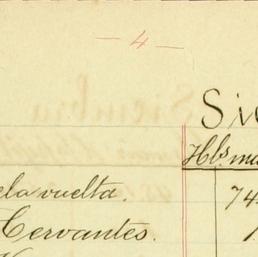 - 4 -
Si
Hbs. ma
ela vuelta. 74
Cervantes.